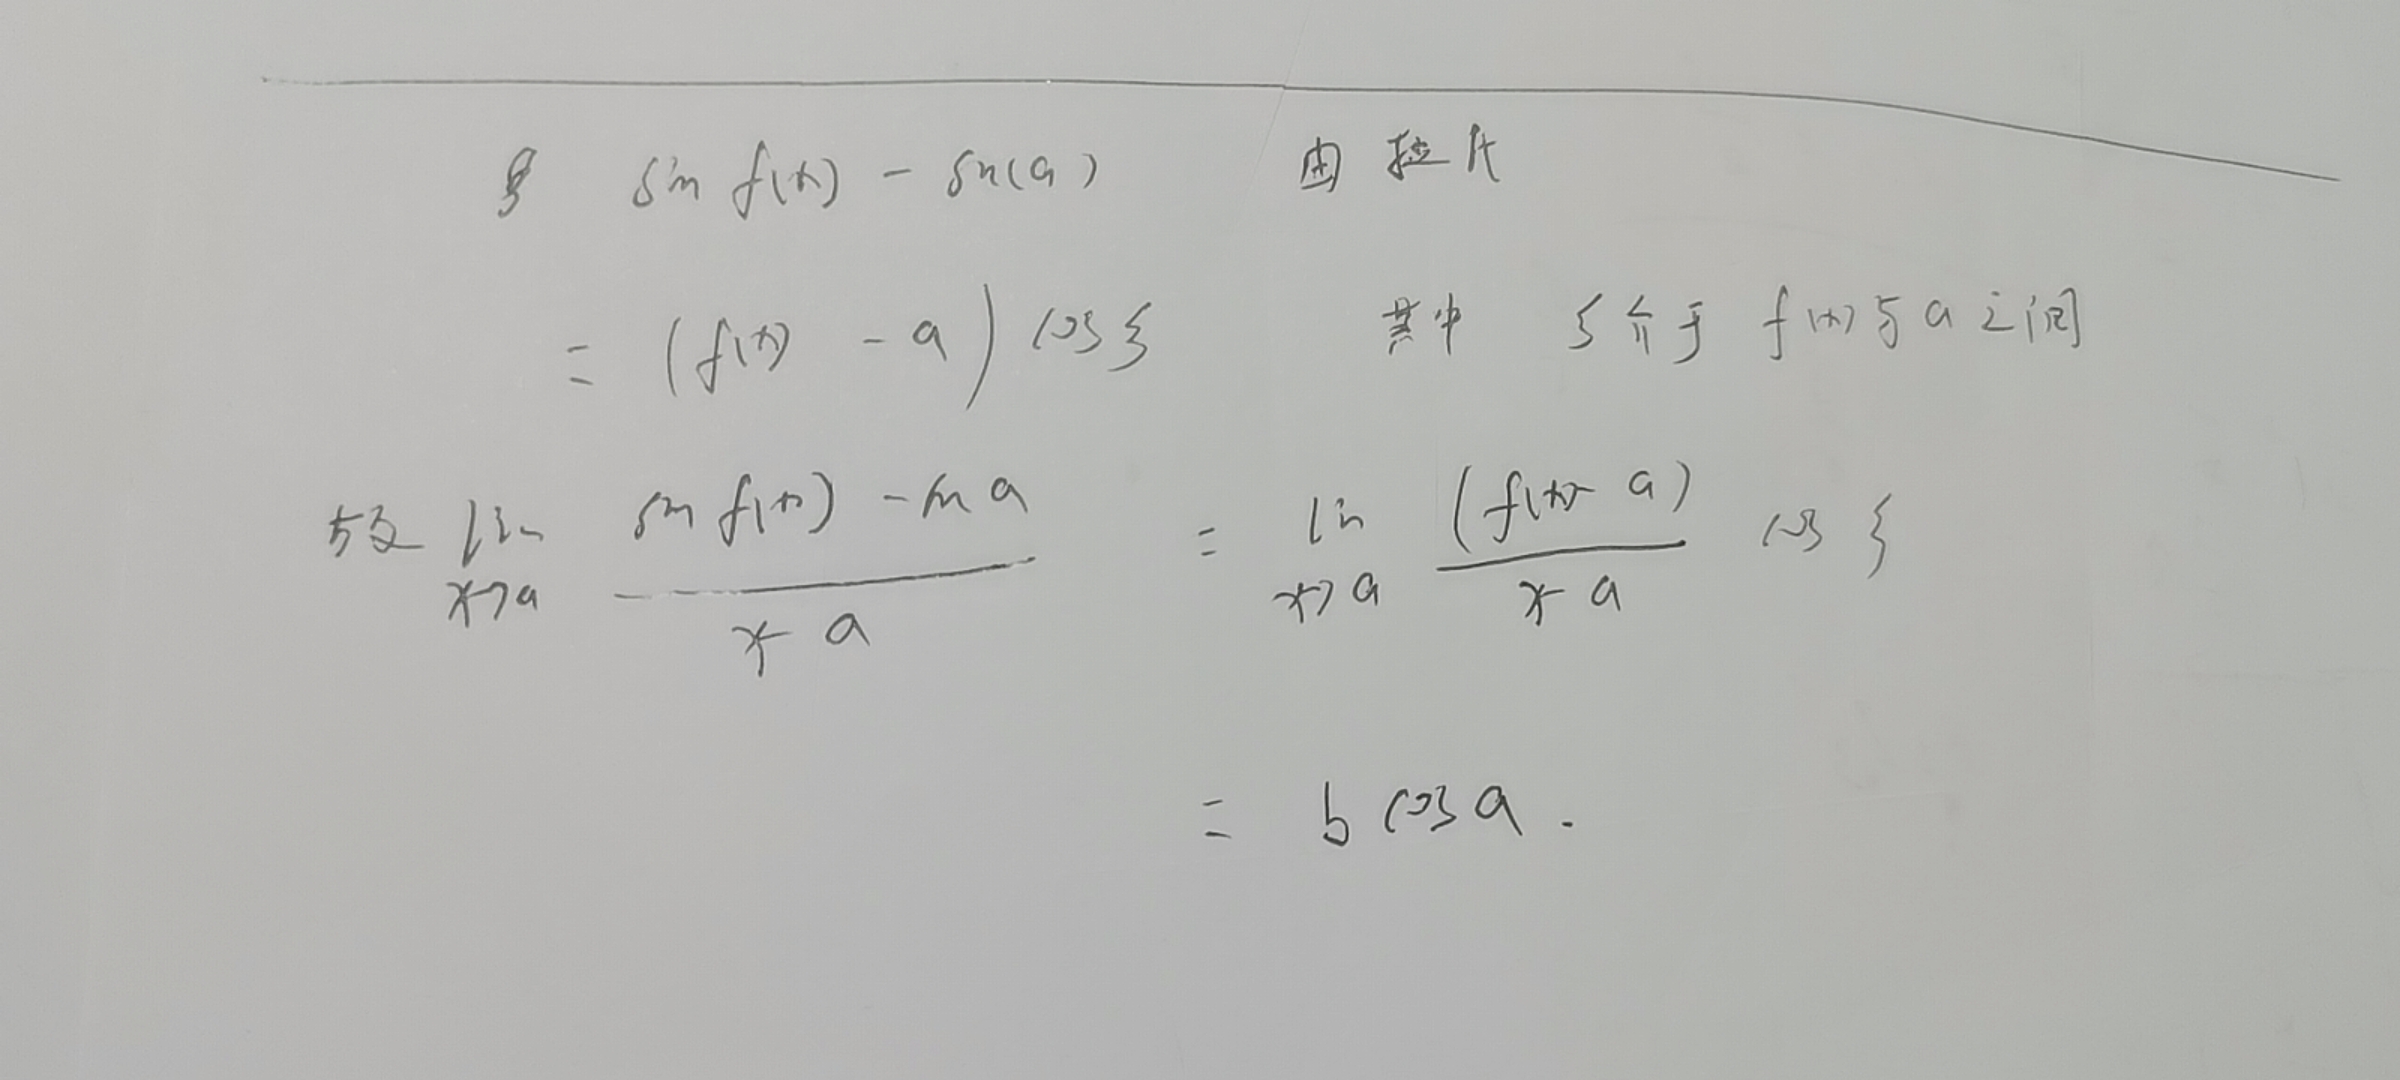 sin f(x) - sin(a) 由拉氏
= (f(x) - a) cos ξ 其中 ξ介于 f(x)与a之间
故 lim x→a (sin f(x) - sin a) / (x - a) = lim x→a (f(x) - a) / (x - a) cos ξ
= b cos a.